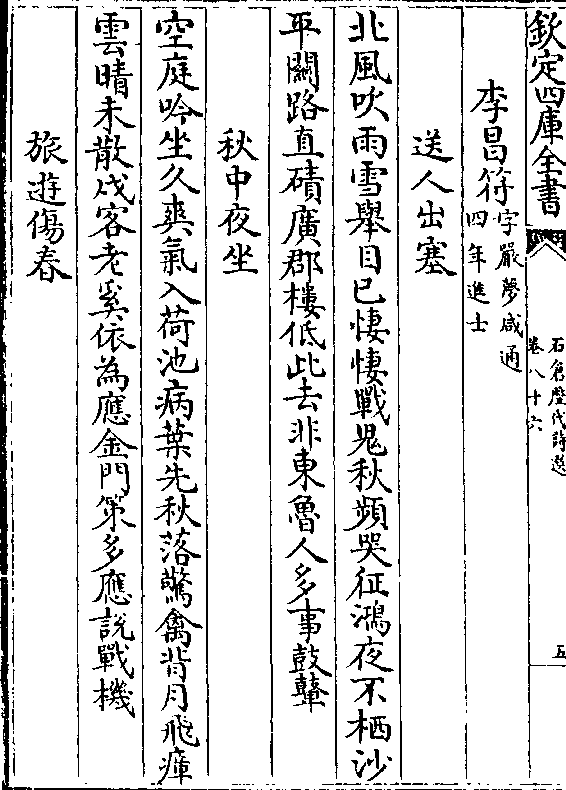 欽定四庫全書
石倉歷代詩選
卷八十六
五
李昌符字嚴夢咸通
四年進士
送人出塞
北風吹雨雪舉目已悽悽戰鬼秋頻哭征鴻夜不栖沙
平關路直磧廣郡樓低此去非東魯人多事鼓鼙
秋中夜坐
空庭吟坐久爽氣入荷池病葉先秋落驚禽背月飛瘴
雲晴未散戍客老奚依為應金門策多應說戰機
旅遊傷春